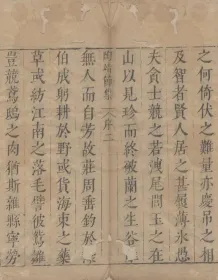 之何倚伏之難量亦慶吊之相
及智者賢人居之甚履薄氷愚
夫貪士競之若洩尾閭玉之在
山以見珍而終破蘭之生谷雖
陶靖節集 序 二
無人而自芳故莊周垂釣於濠
伯成躬耕於野或貨海東之藥
草或紡江南之落毛譬彼鴛雛
豈競鳶鴟之肉猶斯雜縣寧勞